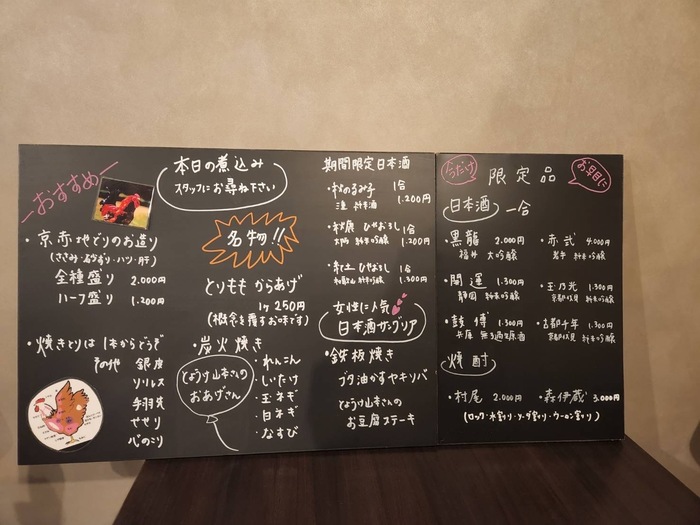 おすすめ
・京赤地どりのお造り
(ささみ・ずり・ハツ・肝)
全種盛り 2.000円
ハーフ盛り 1.200円
・焼きとりは1本からどうぞ
その他 銀皮
ソリレス
手羽先
せせり
心のこり
本日の煮込み
スタッフにお尋ね下さい
名物!!
とりもも からあげ
1ケ 250円
(概念を覆すお味です)
・炭火焼き
とようけ山本さんの
おあげさん
・れんこん
・しいたけ
・玉ネギ
・白ネギ
・なすび
期間限定日本酒
・秋のるみ子 1合
純米酒 1.200円
・秋鹿 ひやおろし 1合
大阪 純米吟醸 1.200円
・紀土 ひやおろし 1合
和歌山 純米吟醸 1.300円
女性に人気
日本酒サングリア
・鉄板焼き
ブタ油かすヤキソバ
とようけ山本さんの
お豆腐ステーキ
今だけ
限定品
お早目に
日本酒 一合
・黒龍 2.000円
福井 大吟醸
・開運 1.300円
静岡 純米吟醸
・鼓 1.300円
兵庫 無ろ過生原酒
・赤武 4.000円
岩手 純米吟醸
・玉乃光 1.300円
京都伏見 純米吟醸
・古都千年 1.300円
京都伏見 純米吟醸
焼酎
・村尾 2.000円
・森伊蔵 3.000円
(ロック・水割り・ソーダ割り・ウーロン割り)